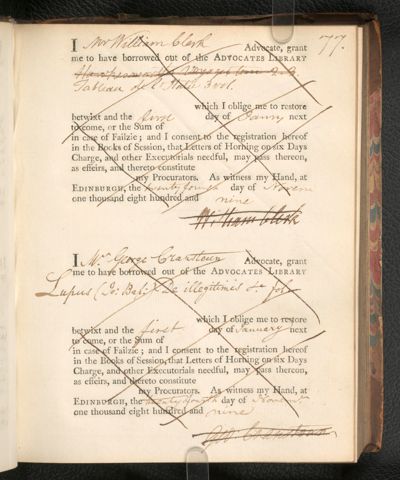 77.
I Mr William Clerk Advocate, grant
me to have borrowed out of the ADVOCATES LIBRARY
Hawkesworth's Voyages
Tableau de 3 vol.
which I oblige me to restore
betwixt and the first day of Janry next
to come, or the Sum of
in case of Failzie; and I consent to the registration hereof
in the Books of Session, that Letters of Horning on six Days
Charge, and other Executorials needful, may pass thereon,
as effeirs, and thereto constitute
my Procurators. As witness my Hand, at
EDINBURGH, the twenty fourth day of Novem
one thousand eight hundred and nine
William Clerk
I Mr. George Cranstoun Advocate, grant
me to have borrowed out of the ADVOCATES LIBRARY
Lupus (Jo: Bap:) De illegitimis &c fol.
which I oblige me to restore
betwixt and the first day of January next
to come, or the Sum of
in case of Failzie; and I consent to the registration hereof
in the Books of Session, that Letters of Horning on six Days
Charge, and other Executorials needful, may pass thereon,
as effeirs, and thereto constitute
my Procurators. As witness my Hand, at
EDINBURGH, the twenty fourth day of Novemr
one thousand eight hundred and nine
Geo. Cranstoun